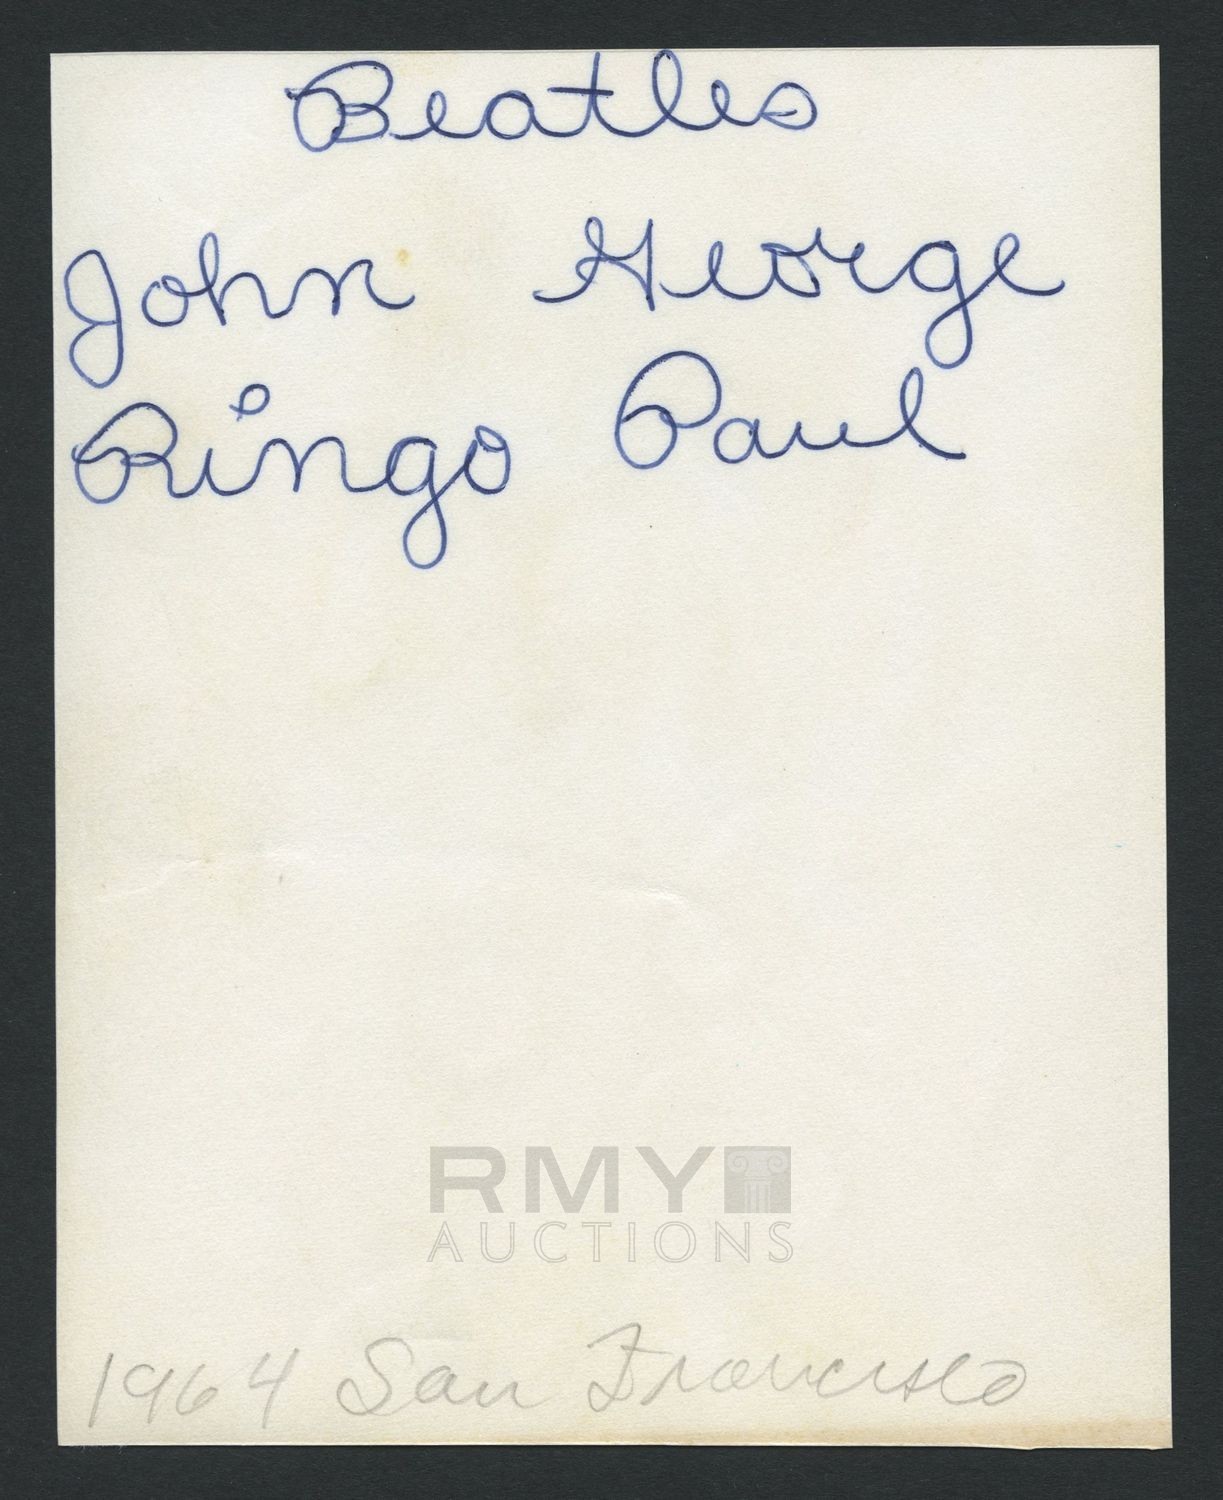 Beatles
John George
Ringo Paul
RMY
AUCTIONS
1964 San Francisco